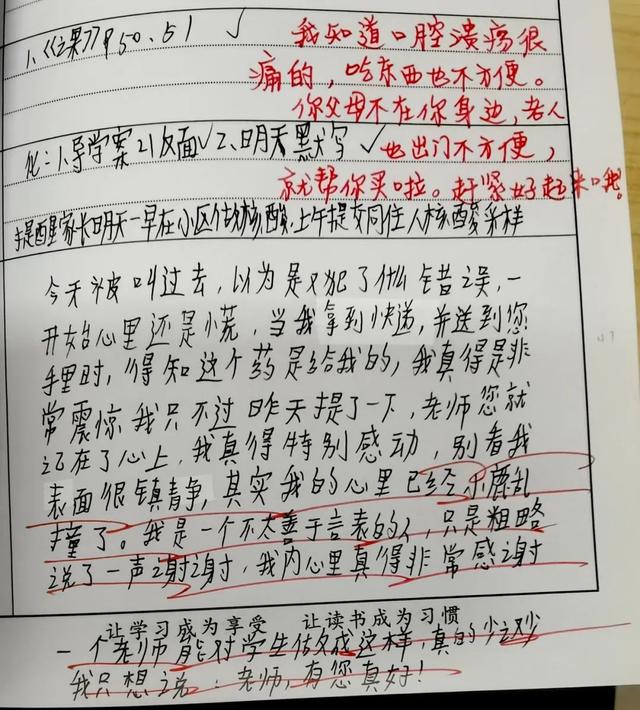 1、《红果》P50、51 ✓
我知道口腔溃疡很
痛的，吃东西也不方便。
你父母不在你身边，老人
化：1、导学案21反面✓2、明天默写✓
也出门不方便，
就帮你买啦。赶紧好起来哦！
提醒家长明天一早在小区做核酸，上午提交同住人核酸采样
今天被叫过去，以为是又犯了什么错误，一
开始心里还是慌，当我拿到快递，并送到您
手里时，得知这个药是给我的，我真得是非
常震惊我只不过昨天提了一下，老师您就
记在了心上，我真得特别感动，别看我
表面很镇静，其实我的心里已经小鹿乱
撞了。我是一个不太善于言表的人，只是粗略
说了一声谢谢，我内心里真得非常感谢
让学习成为享受 让读书成为习惯
一个老师能对学生做成这样，真的少之又少
我只想说：老师，有您真好！